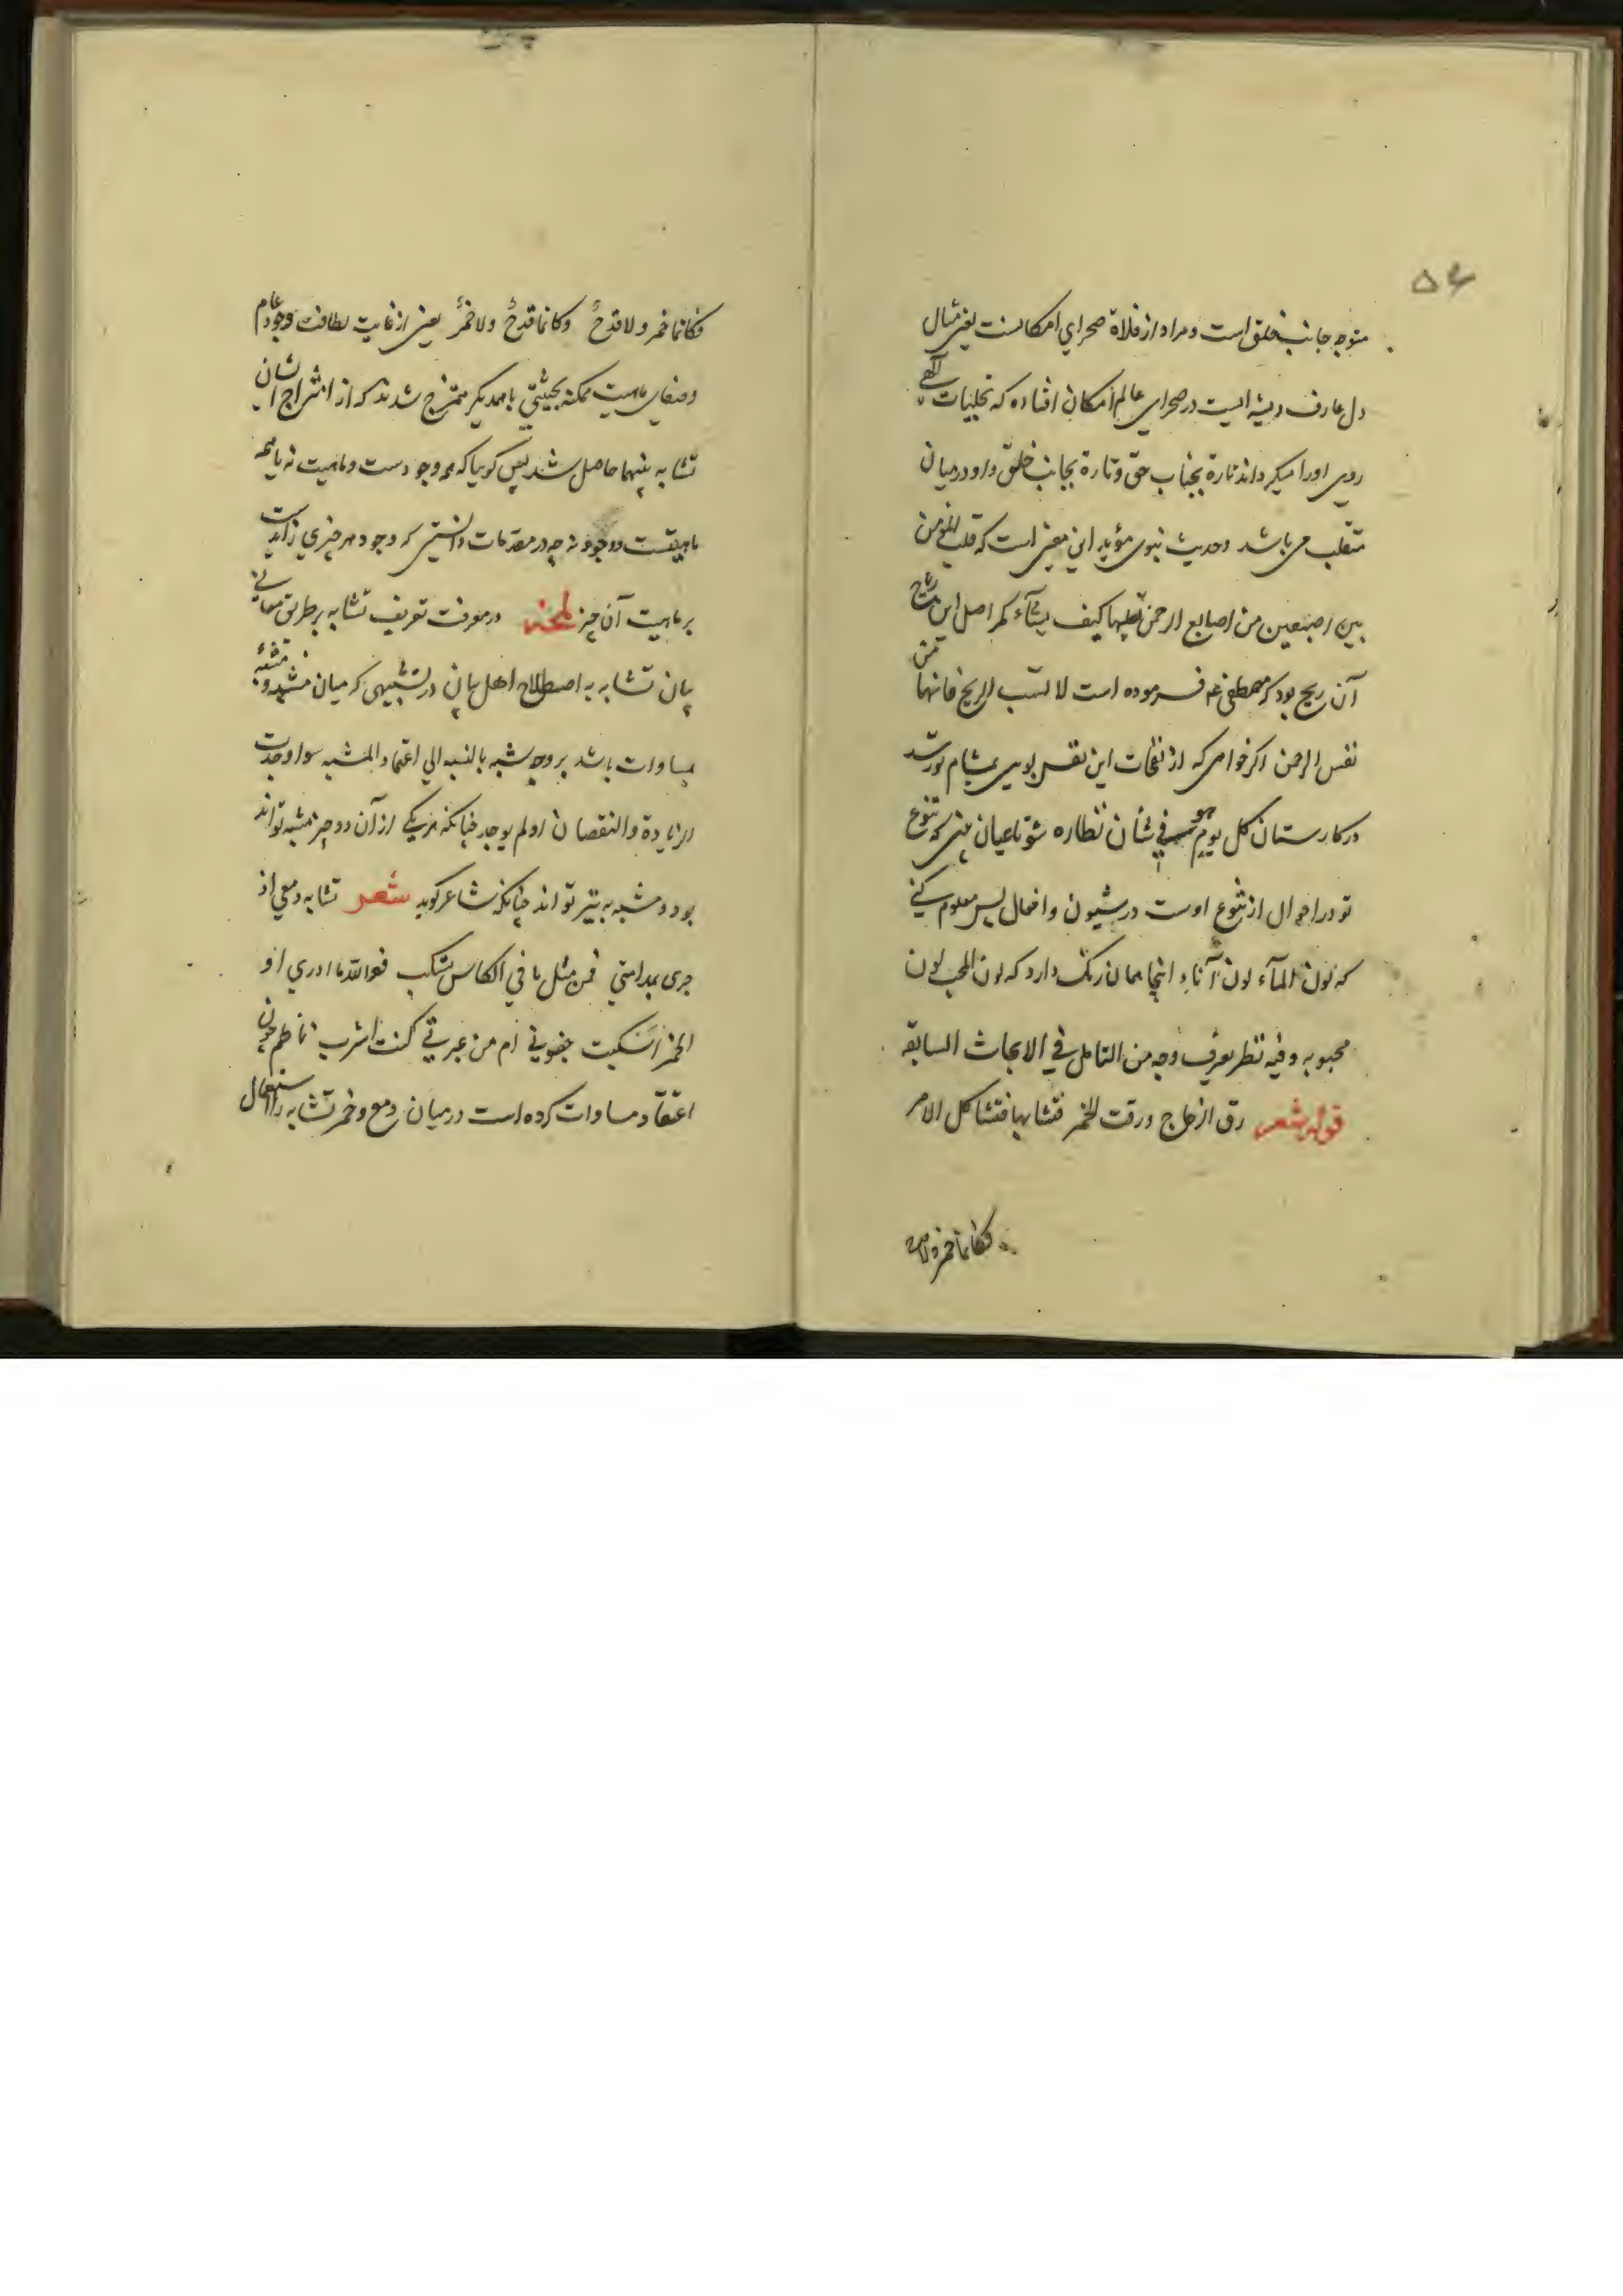 ۵۶
متوجه جانب خلق است و مراد از فلاة صحرای امکانست یعنی مثال
دل عارف ریشه ایست در صحرای عالم امکان افتاده که تجلیات الهی
روی او را میگرداند تارة بجناب حق و تارة بجانب خلق و او درمیان
متقلب می باشد و حدیث نبوی مؤید این معنی است که قلب المؤمن
بین اصبعین من اصابع الرحمن یقلبها کیف یشآء کمر اصل این ریاح
آن ریح بود که مصطفی عم فرموده است لا تسب الریح فانها من
نفس الرحمن اکر خواهی که از نفحات این نفس بوی بمشام تو رسد
در کارستان کل یوم هو فی شأن نظاره شو تا عیان بینی که تنوع
تو در احوال از تنوع اوست در شیون و افعال پس معلوم کنی
که لون المآء لون آنائه اینجا همان رنک دارد که لون المحب لون
محبوبه وفیه نظر یعرف وجه من التامل فی الابحاث السابقه
قوله شعر رق الزجاج و رقت الخمر فتشابها فتشاکل الامر
فکانما خمر ولا
فکانما خمر ولا قدحٌ وکانما قدحٌ ولا خمرٌ یعنی از غایت لطافت وجود عام
وصفای ماهیت ممکنه بحیثیتی باهمدیکر ممتزج شدند که از امتزاج ایشان
تشابه بینهما حاصل شد پس کوییا که همه وجودست و ماهیت نه یا همه
ماهیتست و وجود نه چه در مقدمات دانستی که وجود هر چیزی زایدست
بر ماهیت آن چیز لمحه در معرفت تعریف تشابه بر طریق معانی
بیان تشابه به اصطلاح اهل بیان در تشبیهی که میان مشبه و مشبه به
مساوات باشد بر وجه شبه بالنسبه الی اعتماد المشبه سوا وجدت
الزیادة والنقصان او لم یوجد چنانکه هر یکی از آن دو چیز مشبه تواند
بود و مشبه به نیز تواند چنانکه شاعر کوید شعر تشابه دمعی اذ
جری بمدامتی فمن مثل ما فی الکاس تسکب فوالله ما ادری ا و
الخمر اسکبت جفونی ام من عبرتی کنت اشرب ناظم چون
اعتقاد مساوات کرده است درمیان دمع و خمر تشابه را استعمال